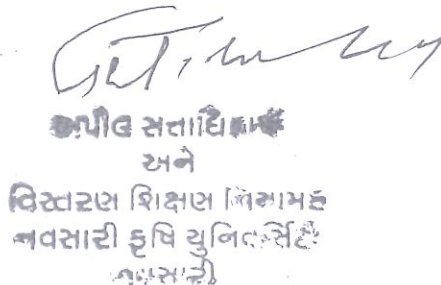 અપીલ સત્તાધિકારી
અને
વિસ્તરણ શિક્ષણ નિયામક
નવસારી કૃષિ યુનિવર્સિટી
નવસારી